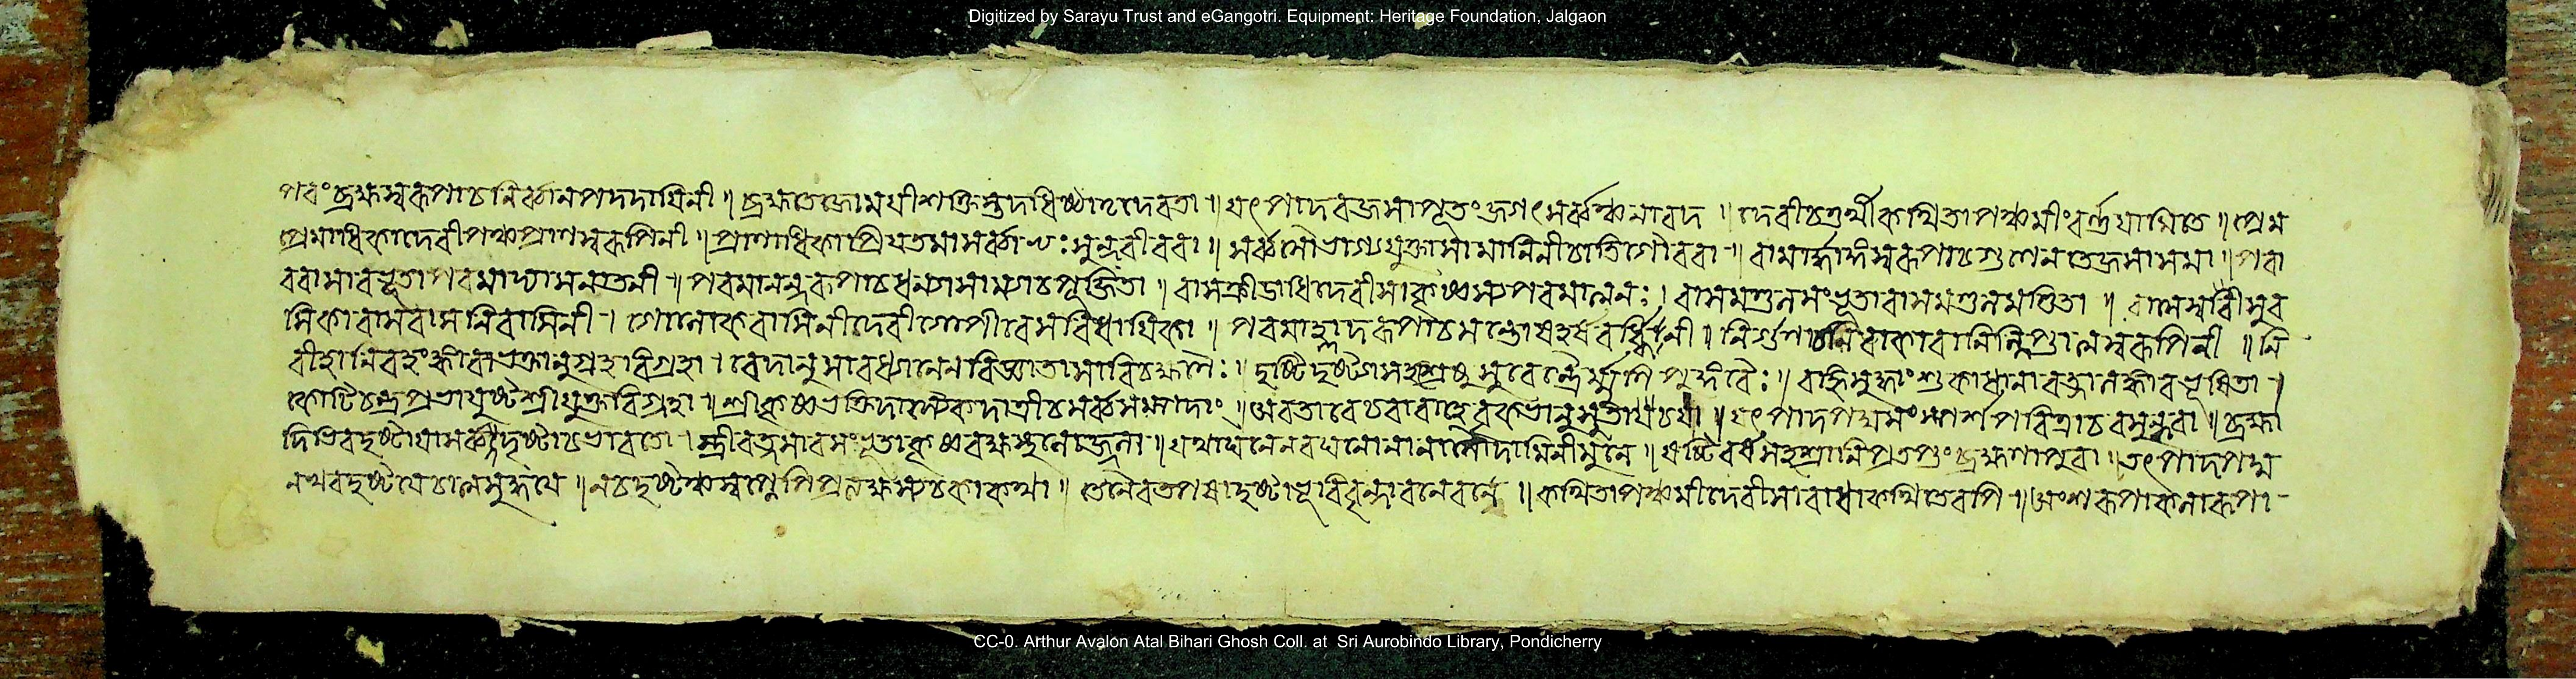 Digitized by Sarayu Trust and eGangotri. Equipment: Heritage Foundation, Jalgaon
পরংব্রহ্মস্বরূপাচনির্ব্বানপদদায়িনী ॥ ব্রহ্মতেজোময়ীশক্তিস্তদধিষ্ঠাতৃদেবতা ॥ যৎপাদেরজসাপূতংজগৎসর্ব্বঞ্চনারদ । দেবীচতুর্থীকথিতাপঞ্চমীংবর্ণ্ণয়ামিতে ॥ প্রেম
প্রেমাধিকাদেবীপঞ্চপ্রাণস্বরূপিনী ॥ প্রাণাধিকাপ্রিয়তমাসর্ব্বা সুন্দরীবরা ॥ সর্ব্বসৌভাগ্যযুক্তাসামানিনীচাতিগৌরবা ॥ বামার্দ্ধাঙ্গস্বরূপাচগুণেনতেজসাসমা ॥ পরা
বরাসারভূতাপরমাদ্যাসনাতনী ॥ পরমানন্দরূপাচধন্যামান্যাচপূজিতা ॥ রাসক্রীডাধিদেবীসাকৃষ্ণস্যপরমাত্মনঃ । রাসমণ্ডলসংভূতারাসমণ্ডলমণ্ডিতা ॥ রাসেশ্বরীসুর
সিকারাসবাসনিবাসিনী । গোলোকবাসিনীদেবীগোপীবেসবিধায়িকা ॥ পরমাহ্লাদরূপাচসন্তোষহর্ষ নী ॥ নির্গুণাচনিরাকারানির্লিপ্তাত্মস্বরূপিনী ॥ নি
রীহানিরহংকারাভক্তানুগ্রহবিগ্রহা । বেদানুসারধ্যানেনবিজ্ঞাতাসাবিচক্ষণৈঃ । দৃষ্টিদৃষ্টাসহস্রেষুসুরেন্দ্রৈর্ম্মুনিপুঙ্গবৈঃ ॥ বহ্নিসুদ্ধাংশুকাধানারত্নালঙ্কারভূষিতা ।
কোটিচন্দ্রপ্রভাযুষ্টশ্রীযুক্তবিগ্রহা ॥ শ্রীকৃষ্ণভক্তিদাস্যৈকদাত্রীচসর্ব্বসম্পদাং ॥ অবতারেচবারাহেবৃকভানুসুতাচযা ॥ যৎপাদপদ্মসংস্পর্শপবিত্রাচবসুন্ধরা ॥ ব্রহ্মা
দিভিরদৃষ্টায়াসর্ব্বদৃষ্টাচভারতে । স্ত্রীরত্নসারসংভূতাকৃষ্ণবক্ষস্থলোজ্জ্বলা ॥ যথাঘনেনবঘনেলোলা সৌদামিনীমুনে ॥ ষষ্টিবর্ষসহস্রানিপ্রতপ্তংব্রহ্মণাপুরা ॥ তৎপাদপদ্ম
নখরদৃষ্টয়েচাত্মসুদ্ধয়ে ॥ নচদৃষ্টঞ্চস্বপ্নেপিপ্রত্যক্ষস্যচকাকথা ॥ তেনৈবতপসাদৃষ্টাভূরিবৃন্দাবনেবনে ॥ কথিতাপঞ্চমীদেবীসারাধাকথিতেরপি ॥ অংশরূপাকলারূপা
CC-0. Arthur Avalon Atal Bihari Ghosh Coll. at Sri Aurobindo Library, Pondicherry